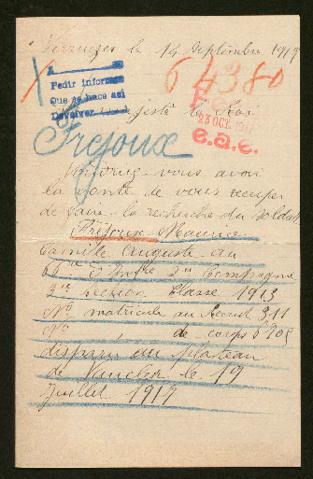 le 14 Septembre 1917
A
Pedir informes
Que se hace así
Devolver
64380
23 OCT. 1917
e.a.e.
Majesté le Roi
Frejoux
vous avoir
la bonté de vous
de faire la recherche du Soldat
Fréjoux Maurice
Camille Auguste au
66e d'Inftie 2e Compagnie
section Classe 1913
No matricule au Recrut 311
No de corps 6905
disparu au plateau
de Vauclerc le 19
Juillet 1917